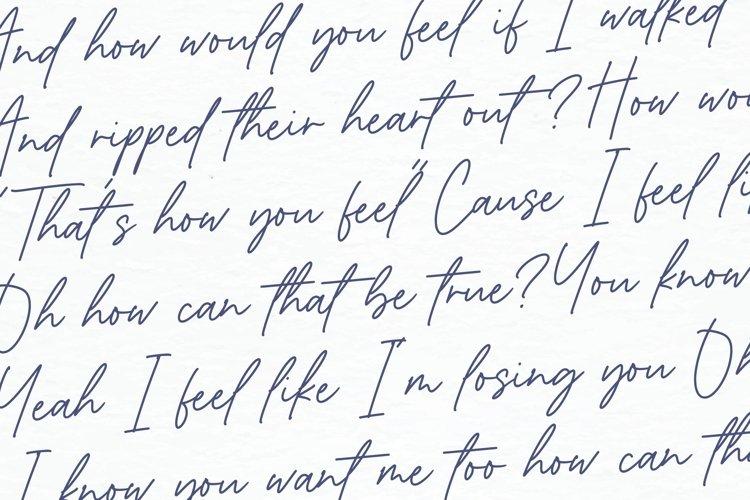 And how would you feel if I walked
And ripped their heart out? How
"That's how you feel" Cause I feel
Oh how can that be true? You know
Yeah I feel like I'm losing you Oh
I know you want me too how can